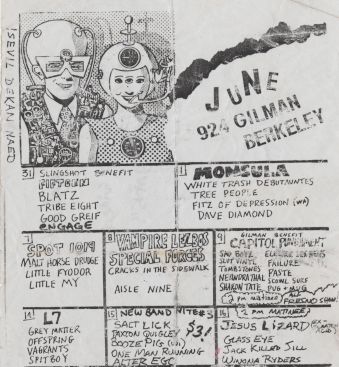 JUNE
924 GILMAN
BERKELEY
31 SLINGSHOT BENEFIT
FIFTEEN
BLATZ
TRIBE EIGHT
GOOD GREIF
ENGAGE
1 MONSULA
WHITE TRASH DEBUTAUNTES
TREE PEOPLE
FITZ OF DEPRESSION (WA)
DAVE DIAMOND
7
SPOT 1019
MALT HORSE DRUDGE
LITTLE FYODOR
LITTLE MY
8 VAMPIRE LEZBOS
SPECIAL FORCES
CRACKS IN THE SIDEWALK
AISLE NINE
9 GILMAN BENEFIT
CAPITOL PUNISHMENT
SAD BOYZ
FAILURE
TOMBSTONES
PASTE
NEANDERTHAL
SCOWL SURF
SHAKIN TATE
PUG + MUG
2 PM MATINEE
FRESNO SHOW!
14 L7
GREY MATTER
OFFSPRING
VAGRANTS
SPITBOY
15 NEW BAND NITE #3
SALT LICK
$3!
PAXTON QUIGLEY
BOOZE PIG
ONE MAN RUNNING
ALTER EGO
16 (2 PM MATINEE!)
JESUS LIZARD
GLASS EYE
JACK KILLED JILL
WINONA RYDERS